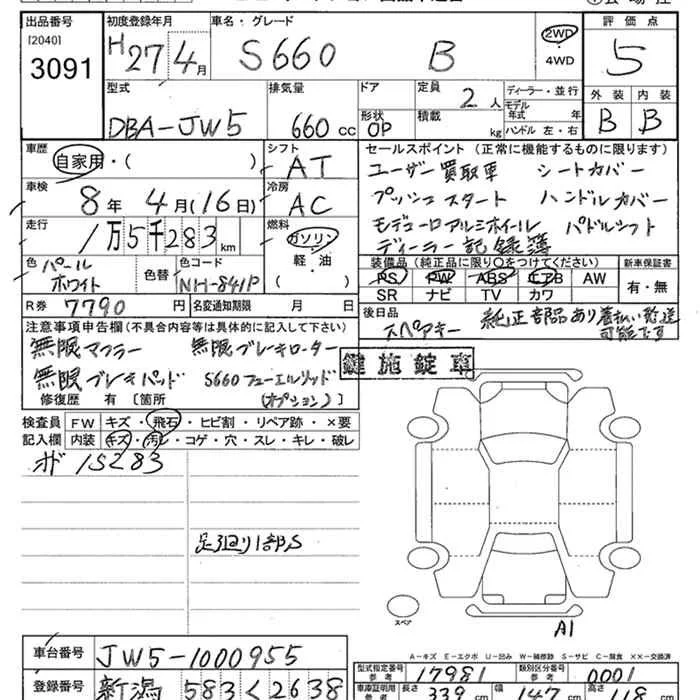 出品番号
[2040]
3091
初度登録年月
H27年4月
車名・グレード
S660 B
2WD
・
4WD
評価点
5
外装 内装
B B
型式
DBA-JW5
排気量
660 cc
ドア
形状
OP
定員
2人
積載
kg
ディーラー・並行
モデル
年式 年
ハンドル 左・右
車歴
自家用・( )
シフト
AT
車検
8年 4月(16日)
冷房
AC
走行
1万5千283km
燃料
ガソリン・
軽・油
( )
セールスポイント(正常に機能するものに限ります)
ユーザー買取車 シートカバー
プッシュスタート ハンドルカバー
モデューロアルミホイール パドルシフト
ディーラー記録簿
色 パール
ホワイト
色替
色コード
NH-841P
装備品(純正品に限り○をつけてください)
PS PW ABS エアB AW
SR ナビ TV カワ
新車保証書
有・無
R券 7790円
名変通知期限 月 日
後日品
スペアキー 純正部品あり着払い発送
可能です
注意事項申告欄(不具合内容等は具体的に記入して下さい)
無限マフラー 無限ブレーキローター
無限ブレーキパッド S660フューエルリッド
(オプション)
修復歴 有〔箇所 〕
鍵施錠車
検査員
記入欄
FW キズ・飛石・ヒビ割・リペア跡・×要
内装 キズ・汚レ・コゲ・穴・スレ・キレ・破レ
オド 15283
足廻り1部S
スペア
A1
A-キズ E-エクボ U-凹み W-補修跡 S-サビ C-腐食 XX-交換済
車台番号
JW5-1000955
型式指定番号
参考
17981
類別区分番号
参考
0001
登録番号
新潟 583く2638
車庫証明用
参考
長さ 339 cm 幅 147 cm 高さ 118 cm